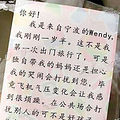 你好！
我是来自宁波的Wendy,
我刚刚一岁半，这不是我
第一次出门旅行了，可是
独自带我的妈妈还是担心
我的哭闹会打扰到您，毕
竟飞机气压变化会让我感
到很烦躁，在公共场合打
扰别人的可不是好孩子